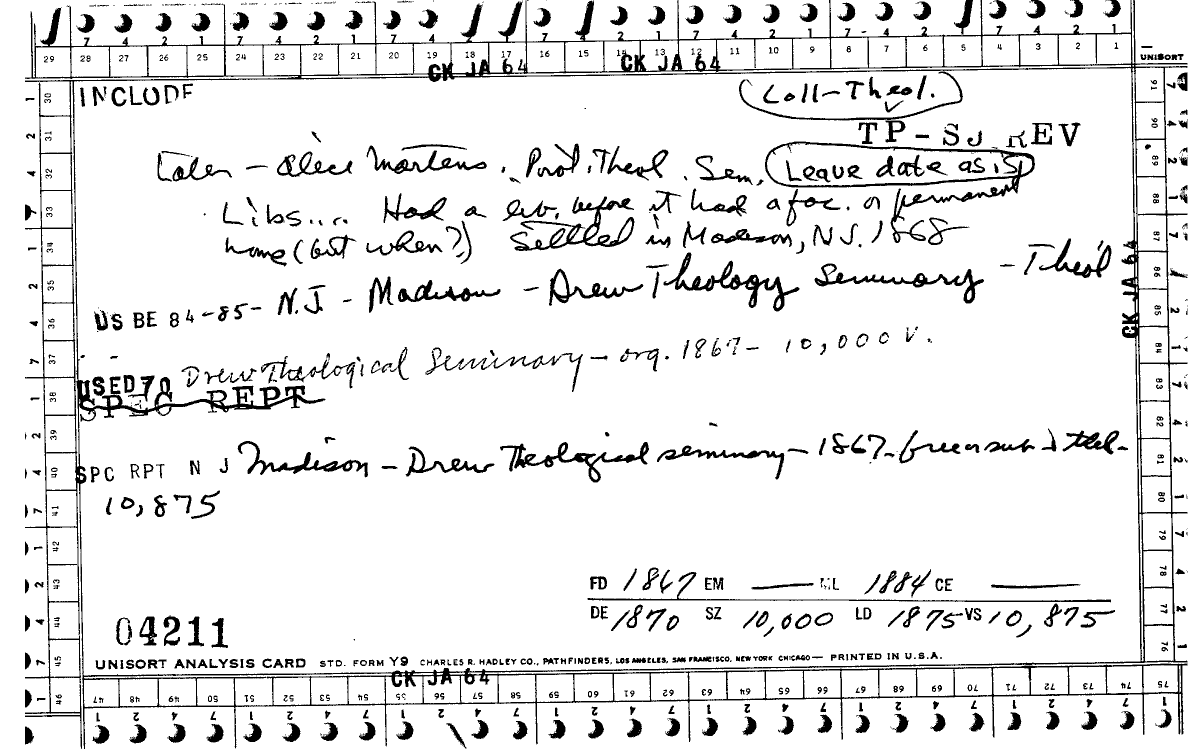 29 28 27 26 25 24 23 22 21 20 19 18 17 16 15 14 13 12 11 10 9 8 7 6 5 4 3 2 1 UNISORT
CK JA 64 CK JA 64
INCLUDE
Coll-Theol.
TP-SJ REV
Later - Alice Martens. Prot. Theol. Sem. Leave date as is
Libs.... Had a lib. before it had a fac. or permanent
home (but when?) Settled in Madison, NJ. 1868
US BE 84-85- N.J. - Madison - Drew Theology Seminary - Theol
CK JA 64
Drew Theological Seminary - org. 1867 - 10,000 V.
USED 70
SPEC REPT
SPC RPT N J Madison - Drew Theological seminary - 1867 - theol-
10,875
FD 1867 EM — ML 1884 CE —
DE 1870 SZ 10,000 LD 1875 VS 10,875
04211
UNISORT ANALYSIS CARD STD. FORM Y9 CHARLES R. HADLEY CO., PATHFINDERS, LOS ANGELES, SAN FRANCISCO, NEW YORK CHICAGO — PRINTED IN U.S.A.
CK JA 64
47 48 49 50 51 52 53 54 55 56 57 58 59 60 61 62 63 64 65 66 67 68 69 70 71 72 73 74 75